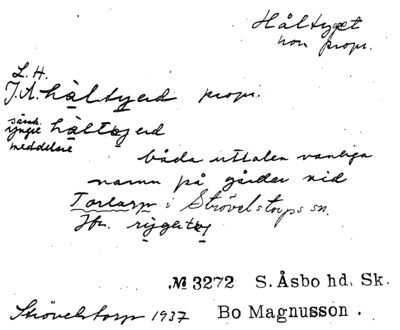 Håltyget
non propr.
L. H.
J.A. håltyed propr.
särsk.
yngre håltøjed
meddelare
båda uttalen vanliga
namn på gården vid
Torlarp i Strövelstorps sn.
Jfr. ryggtøj
№ 3272 S. Åsbo hd, Sk.
Strövelstorp 1937 Bo Magnusson.